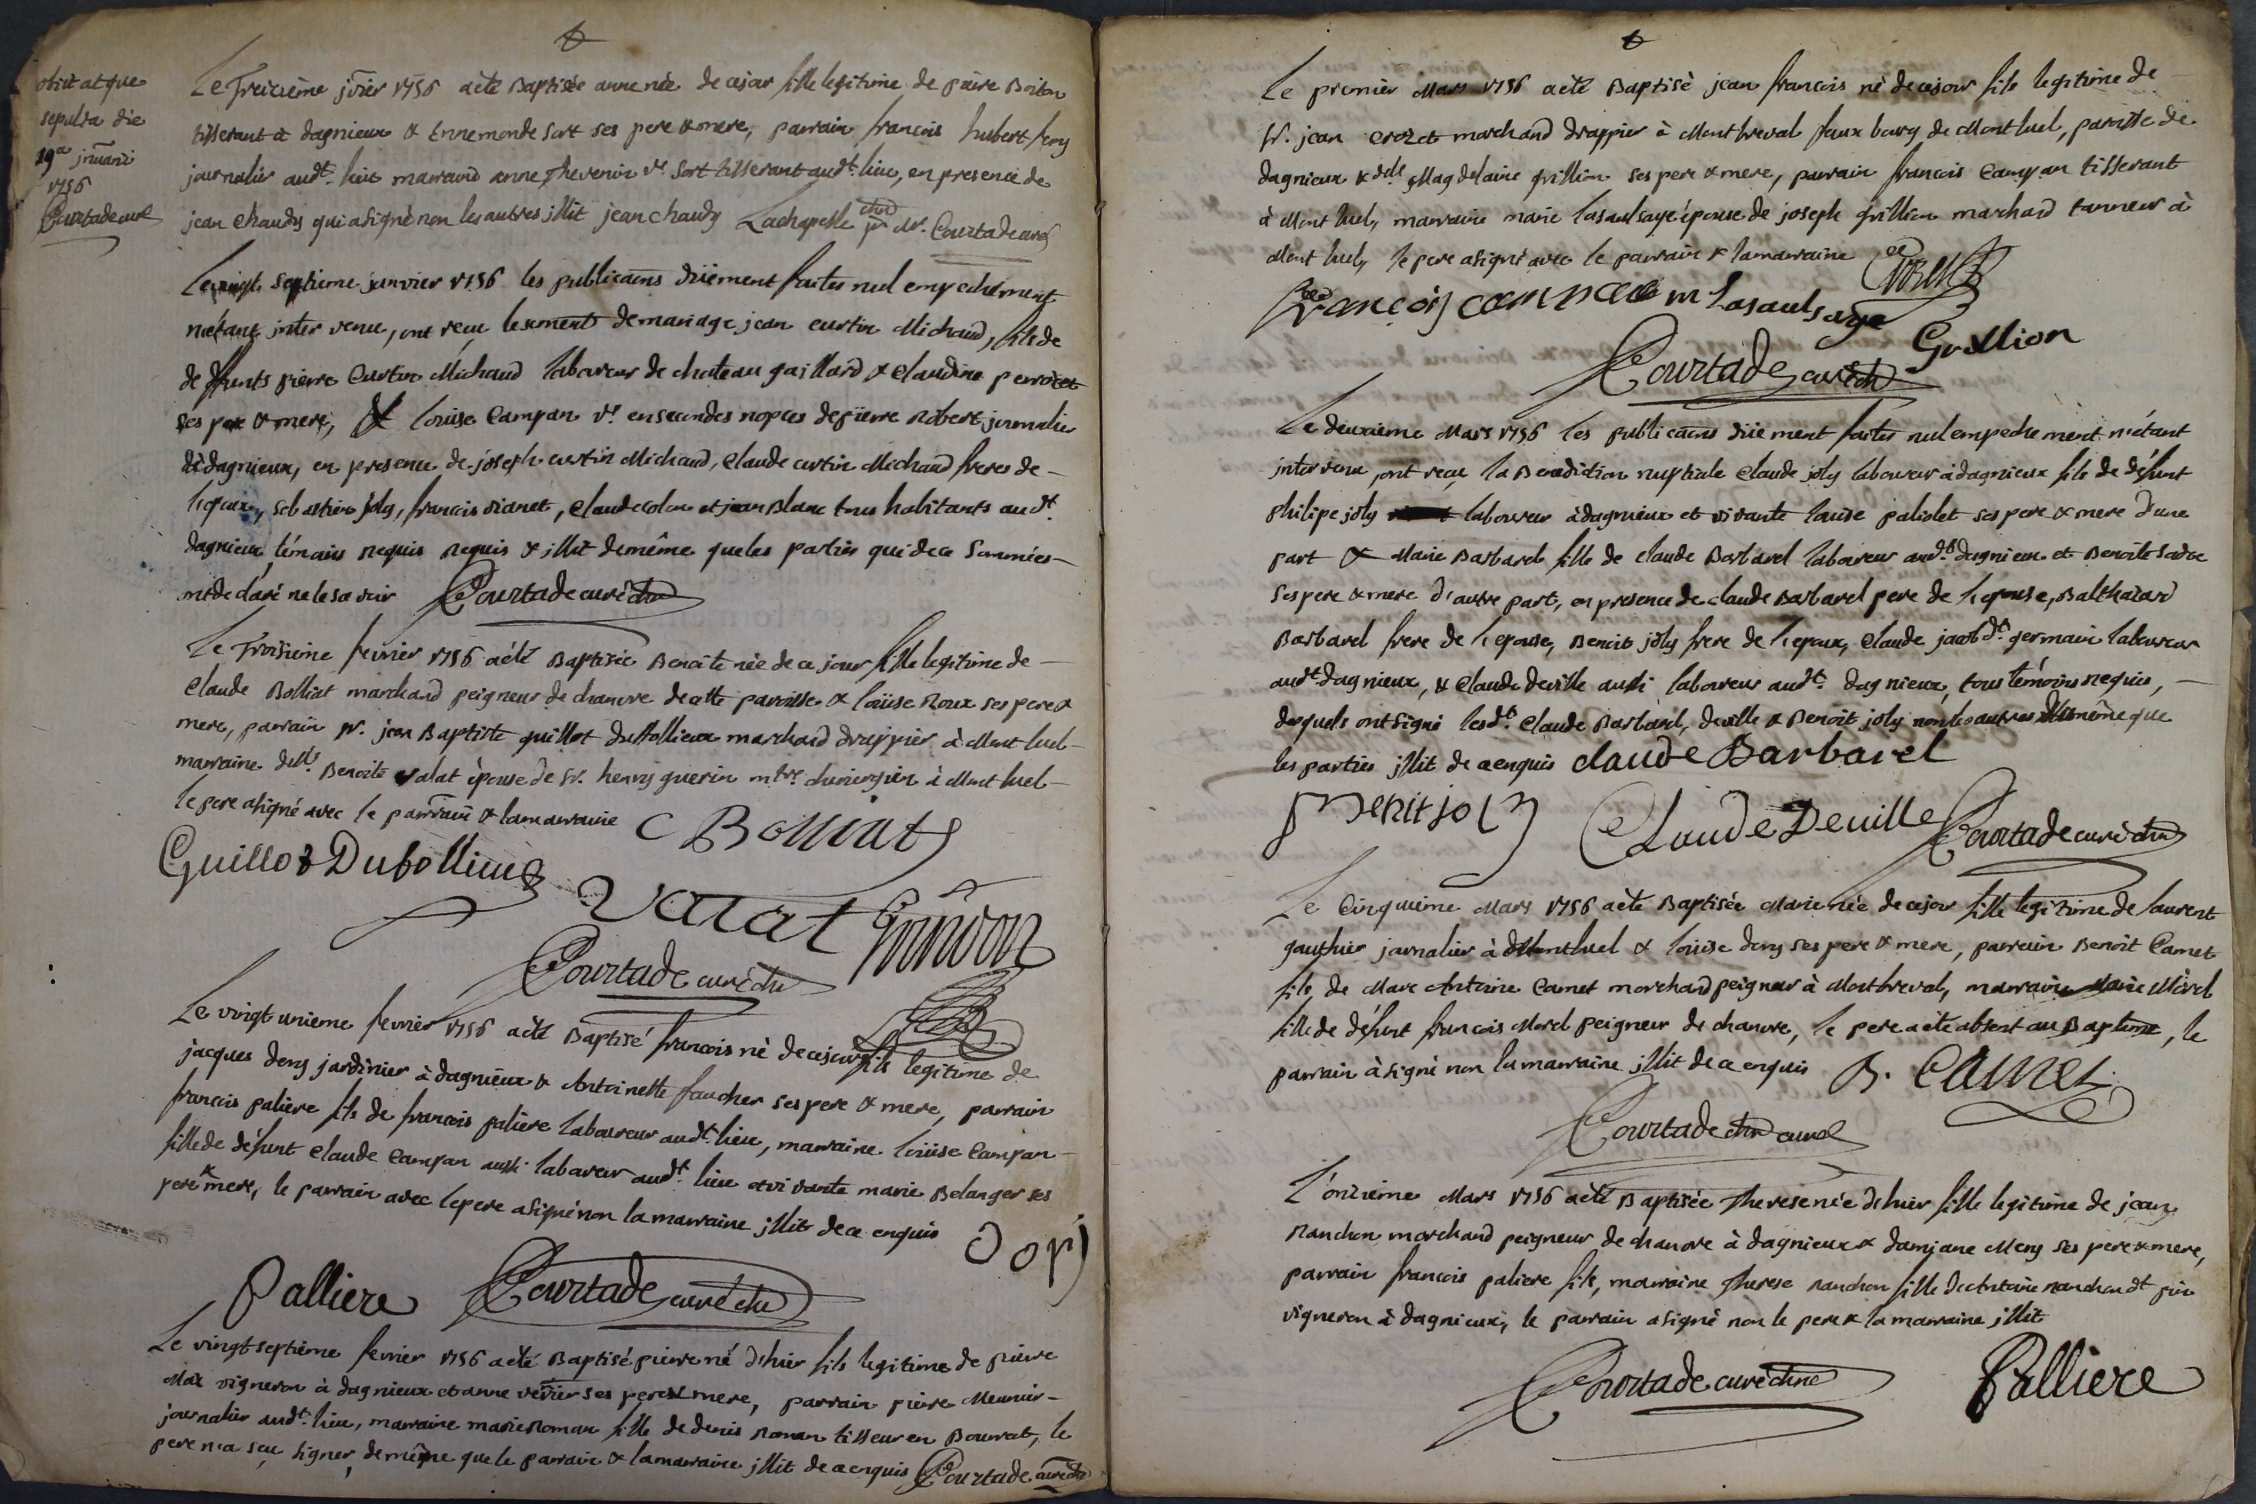 obiit atque
sepulta die
19a jnuarii
1756
Courtade curé
Le Treizième jvier 1756 aété Baptisée anne née de cejour fille legitime de pierre
tisserant à dagnieux & Ennemonde sort ses pere & mere, parrain françois hubert
journalier audt. lieu marraine anne Thevenin ve sort tisserant audt. lieu, en presence de
jean Chaudy qui asigné non les autres illit jean chaudy Lachapelle Courtade curé
Le vingt septieme janvier 1756 les publicaons düement faites nul empechement
n'etant inter venu, ont reçu lesment de mariage jean curtin Michaud, fils de
de dffunts pierre Curtin Michaud laboureur de chateau gaillard & Claudine perrotet
ses pere & mere, & loüise Campan ve. en secondes nopces de pierre Robert journalier
de dagnieux, en presence de joseph curtin Michaud, Claude curtin Michaud freres de
l'epoux, sebastien joly, françois vianet, Claude colon et jean Blanc tous habitants audt.
dagnieux, témoins requis requis & illit demême que les parties qui de ce Sommées
ont déclaré ne le sca voir Courtade curé
Le Troisieme fevrier 1756 aété Baptisée Benoite née de ce jour fille legitime de
Claude Bolliat marchand peigneur de chanvre de cette parroisse & loüise Roux ses pere &
mere, parrain sr. jean Baptiste guillot duBollieux marchand drappier à Mont luel
marraine dlle. Benoite valat épouse de sr. henry guerin mtre. chirurgien à Mont luel
le pere asigné avec le parrain & lamarraine C Bolliat
Guillot Dubollieux
valat
Courtade curé
Le vingt unieme fevrier 1756 aété Baptisé françois né de cejour fils legitime de
jacques deny jardinier à dagnieux & Antoinette faucher ses pere & mere, parrain
françois paliere fils de françois paliere laboureur audt. lieu, marraine loüise Campan
fille de défunt Claude Campan aussi laboureur audt. lieu etvi vante marie Belanger ses
pere & mere, le parrain avec lepere asigné non la marraine illit de ce enquis
Palliere Courtade curé
Le vingt septième fevrier 1756 aété Baptisé pierre né d'hier fils legitime de pierre
vigneron à dagnieux et anne verrier ses pere & mere, parrain pierre Meunier
journalier audt. lieu, marraine marie Roman fille de denis Roman tisseur en Bourrat, le
pere n'a sçu signer, demême que le parrain & lamarraine illit de ce enquis Courtade curé
Le premier Mars 1756 aété Baptisé jean françois né de cejour fils legitime de
sr. jean Crozet marchand drappier à Montbreval faux bourg de Montluel, paroisse de
dagnieux & dlle Magdelaine grillion ses pere & mere, parrain françois Campan tisserant
à Mont luel, marraine marie lasaulsaye épouse de joseph grillion marchand tanneur à
Mont luel, le pere asigné avec le parrain & lamarraine
françois m Lasaulsaye
Grillion
Courtade curé
Le deuxieme Mars 1756 les publicaons düement faites nul empechement n'étant
intervenu, ont reçu la Benediction nuptiale Claude joly laboureur à dagnieux fils de défunt
philipe joly laboureur à dagnieux et vivante loüise paliolet ses pere & mere d'une
part & Marie Barbarel fille de claude Barbarel laboureur audt. dagnieux et Benoite
ses pere & mere d'autre part, en presence de claude Barbarel pere de l'epouse, Balthazard
Barbarel frere de l'epouse, Benoit joly frere de l'epoux, Claude jacob dt. germain laboureur
audt. dagnieux, & Claude deville aussi laboureur audt. dagnieux, tous témoins requis,
desquels ont signé lesdts. Claude Barbarel, deville & Benoit joly non les autres demême que
les parties illit de ce enquis claude Barbarel
Benit joly Claude Deuille Courtade curé
Le Cinquieme Mars 1756 aété Baptisée Marie née de cejour fille legitime de laurent
gauthier journalier à Montluel & loüise deny ses pere & mere, parrain Benoit Camet
fils de Marc Antoine Camet marchand peigneur à Montbreval, marraine Marie Morel
fille de défunt françois Morel peigneur de chanvre, le pere aété absent au Baptême, le
parrain à signé non la marraine illit de ce enquis B. Camet
Courtade curé
L'onzième Mars 1756 aété Baptisée Therese née d'hier fille legitime de jean
Ranchon marchand peigneur de chanvre à dagnieux & damjane Meny ses pere & mere,
parrain françois paliere fils, marraine Therese Ranchon fille d'Antoine ranchon dt
vigneron à dagnieux, le parrain asigné non le pere & la marraine illit
Courtade curé Palliere